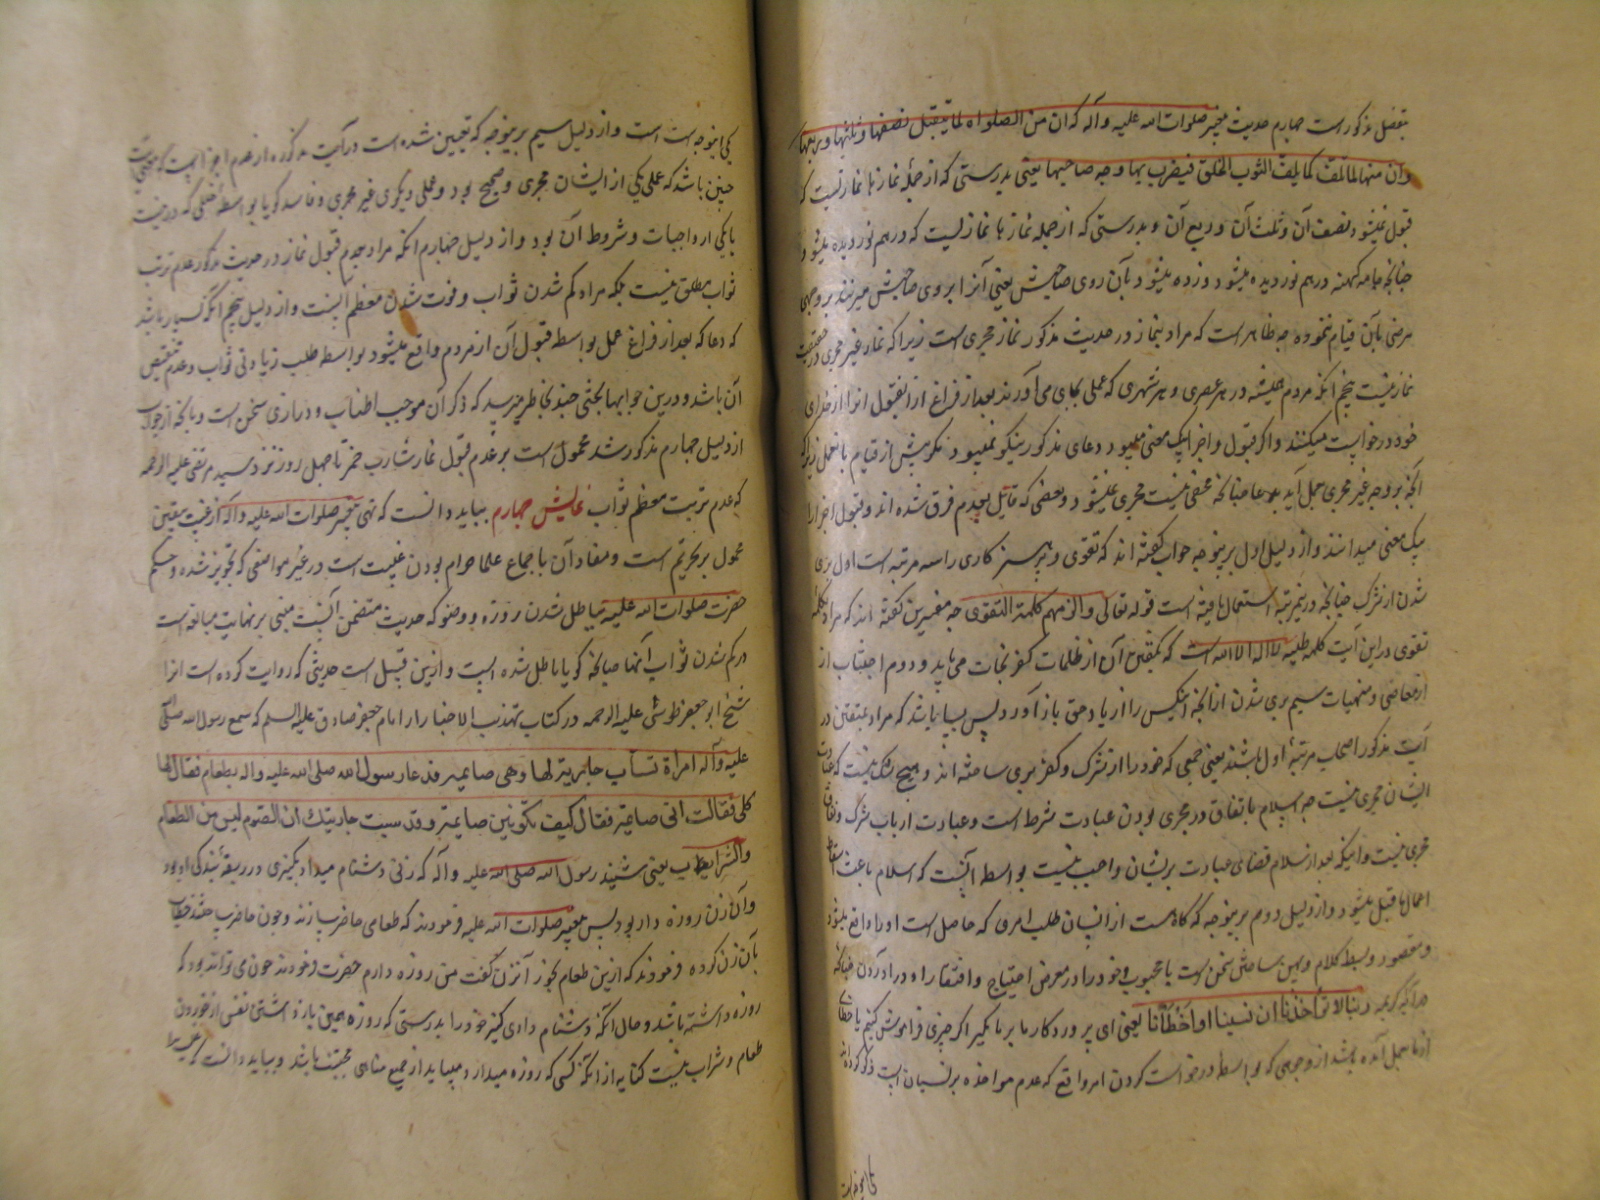 بتفضل مذکورست چهارم حدیث پیغمبر صلوات الله علیه وآله که ان من الصلواة لما یتقبل نصفها و ثلثها و ربعها
وان منها لما تلف کما یلف الثوب الخلق فیضرب بها وجه صاحبها یعنی بدرستی که از جمله نمازها نمازیست که
قبول میشود نصف آن و ثلث آن و ربع آن و بدرستی که از جمله نمازها نمازیست که درهم نوردیده میشود و
چنانچه جامه کهنه درهم نوردیده میشود و زده میشود بآن روی صاحبش یعنی آنرا بروی صاحبش میزنند بر وجهی
مرضی بآن قیام ننموده چه ظاهرست که مراد بنماز در حدیث مذکور نماز مجزی است زیرا که نماز غیر مجزی در حقیقت
نماز نیست پنجم آنکه مردم همیشه در هر عصری و هر شهری که عملی بجای می آورند بعد از فراغ از آن قبول آنرا از خدای
خود درخواست میکنند و اگر قبول و اجزا بیک معنی میبود دعای مذکور نیکو نمیبود مگر پیش از قیام بآن عمل زیرا که
آنچه بر وجه غیر مجزی بعمل آید بدعا چنانچه مخفی نیست مجزی نمیشود و بعضی که قایل بعدم فرق شده اند و قبول و اجزا را
بیک معنی میدانند و از دلیل اول برینوجه جواب گفته اند که تقوی و پرهیزکاری را سه مرتبه است اول بری
شدن از شرک چنانچه درین مرتبه استعمال یافته است قوله تعالی والزمهم کلمة التقوی چه مفسرین گفته اند که مراد بکلمه
تقوی در این آیت کلمه طیبه لا اله الا الله است که بگفتن آن از ظلمات کفر نجات می یابد و دوم اجتناب از
از معاصی و منهیات سیم بری شدن از آنچه آنکس را از یاد حق باز آورد پس میباید که مراد بمتقین در
آیت مذکور اصحاب مرتبه اول باشند یعنی جمعی که خود را از شرک و کفر بری ساخته اند و هیچ شک نیست که عبادت
ایشان مجزی نیست چه اسلام باتفاق در مجزی بودن عبادت شرط است و عبادت ارباب شرک و نفاق
مجزی نیست و اینکه بعد از اسلام قضای عبادت بریشان واجب نیست بواسطه آنست که اسلام باعث اسقاط
اعمال ما قبل میشود و از دلیل دوم برینوجه که گاه هست از انسان طلب امری که حاصل است او را واقع میشود
و مقصود بسط کلام و پهن ساختن سخن است با محبوب و خود را در معرض احتیاج و افتقار در آوردن چنانچه
در آیه کریمه ربنا لا تؤاخذنا ان نسینا او اخطأنا یعنی ای پروردگار ما بر ما مگیر اگر چیزی فراموش کنیم یا خطای
از ما بعمل آمده باشد از وجهی که بواسطه درخواست کردن امر واقع که عدم مواخذه بر نسیان است ذکر کرده اند
یکی اینوجه است است و از دلیل سیم برینوجه که تعیین شده است در آیت مذکوره از عدم اجزا نیست که
چنین باشد که عمل یکی از ایشان مجزی و صحیح بود و عمل دیگری غیر مجزی و فاسد گویا بواسطه خللی که در نیت
یا یکی از واجبات و شروط آن بود و از دلیل چهارم آنکه مراد بعدم قبول نماز در حدیث مذکور عدم ترتب
ثواب مطلق نیست بلکه مراد کم شدن ثواب و فوت شدن معظم آنست و از دلیل پنجم آنکه بسیار باشد
که دعا که بعد از فراغ عمل بواسطه قبول آن از مردم واقع میشود بواسطه طلب زیادتی ثواب و عدم تنقیص
آن باشد و درین جوابها بحثی چند بخاطر میرسد که ذکر آن موجب اطناب و درازی سخن است و بآنچه از جواب
از دلیل چهارم مذکور شد محمول است بر عدم قبول نماز شارب خمر تا چهل روز نزد سید مرتضی علیه الرحمه
که عدم ترتب معظم ثواب نمایش چهارم بباید دانست که نهی پیغمبر صلوات الله علیه وآله از غیبت
محمول بر تحریم است و مفاد آن باجماع علما حرام بودن غیبت است در غیر مواضعی که تجویز شده و حکم
حضرت صلوات الله علیه بباطل شدن روزه و وضو که حدیث متضمن آنست مبنی بر نهایت مبالغه است
در کم شدن ثواب آنها چنانچه گویا باطل شده است و ازین قبیل است حدیثی که روایت کرده است آنرا
شیخ ابو جعفر طوسی علیه الرحمه در کتاب تهذیب الاخبار از امام جعفر صادق علیه السلم که سمع رسول الله صلی الله
علیه وآله امراة تساب جاریة لها وهی صایمة فدعا رسول الله صلی الله علیه واله بطعام فقال لها
کلی فقالت انی صایمة فقال کیف تکونین صایمة وقد سببت جاریتک ان الصوم لیس من الطعام
والشراب یعنی شنید رسول الله صلی الله علیه وآله که زنی دشنام میداد کنیزی در ربقه بندگی او بود
و آن زن روزه دار بود پس پیغمبر صلوات الله علیه فرمودند که طعامی حاضر سازند و چون حاضر شد خطاب
بآن زن کرده فرمودند که ازین طعام بخور آنزن گفت من روزه دارم حضرت فرمودند چون می تواند بود که
روزه داشته باشد و حال آنکه دشنام دادی کنیز خود را بدرستی که روزه همین باز داشتن نفس از خوردن
طعام و شراب نیست کنایه از آنکه کسی که روزه میدارد میباید از جمیع مناهی مجتنب باشد و بباید دانست که